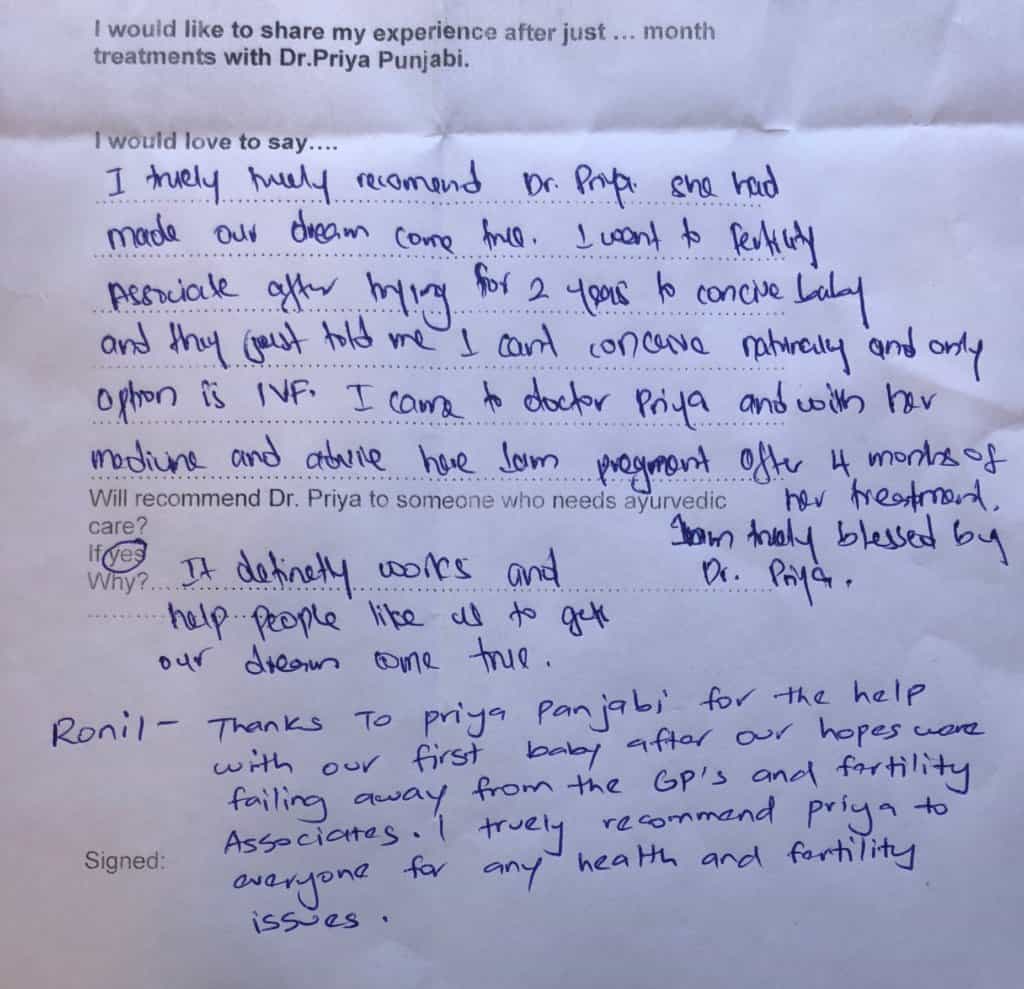 I would like to share my experience after just ... month
treatments with Dr.Priya Punjabi.
I would love to say....
I truely truely recomend Dr. Priya. she had
made our dream come true. I went to fertility
Associate after trying for 2 years to concive baby
and they just told me I cant conceive naturally and only
option is IVF. I came to doctor Priya and with her
medicine and advice here Iam pregnant after 4 months of
her treatment.
Iam truely blessed by
Dr. Priya.
Will recommend Dr. Priya to someone who needs ayurvedic
care?
If yes
Why?... It definetly works and
help people like us to get
our dream come true.
Ronil - Thanks To priya Panjabi for the help
with our first baby after our hopes were
failing away from the GP's and fertility
Associates. I truely recommend priya to
everyone for any health and fertility
issues.
Signed: